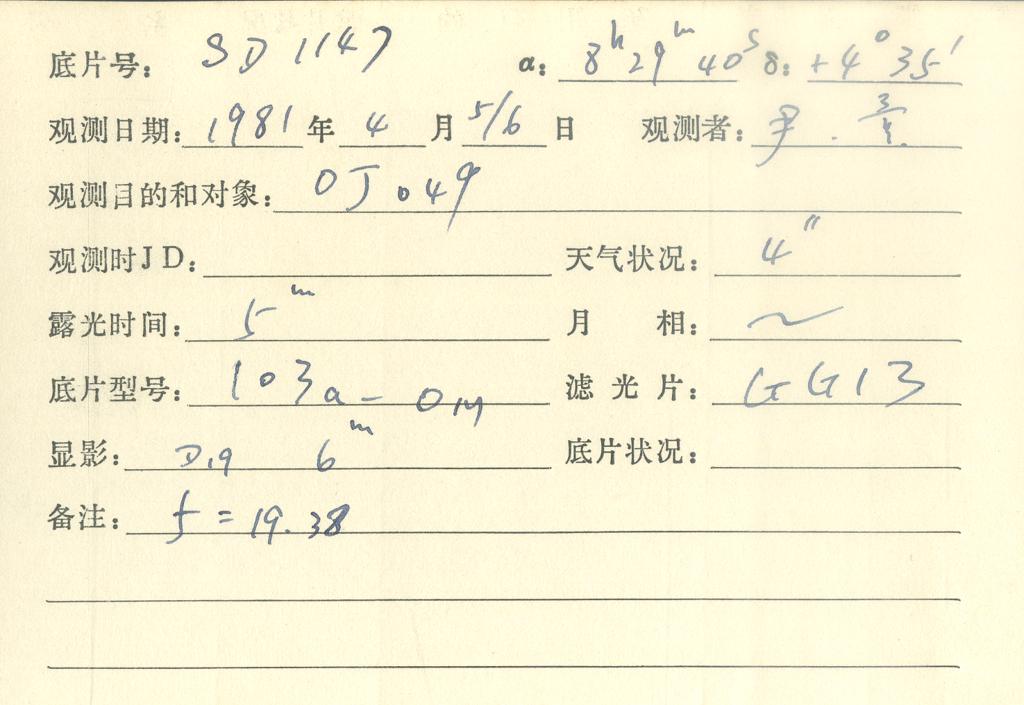 底片号: SD 1147 α: 8h 29m 40s δ: +4° 35′
观测日期: 1981 年 4 月 5/6 日 观测者: 尹.
观测目的和对象: OJ 049
观测时JD: 天气状况: 4″
露光时间: 5m 月 相: ~
底片型号: 103a-O 滤光片: GG13
显影: D19 6m 底片状况:
备注: f = 19.38